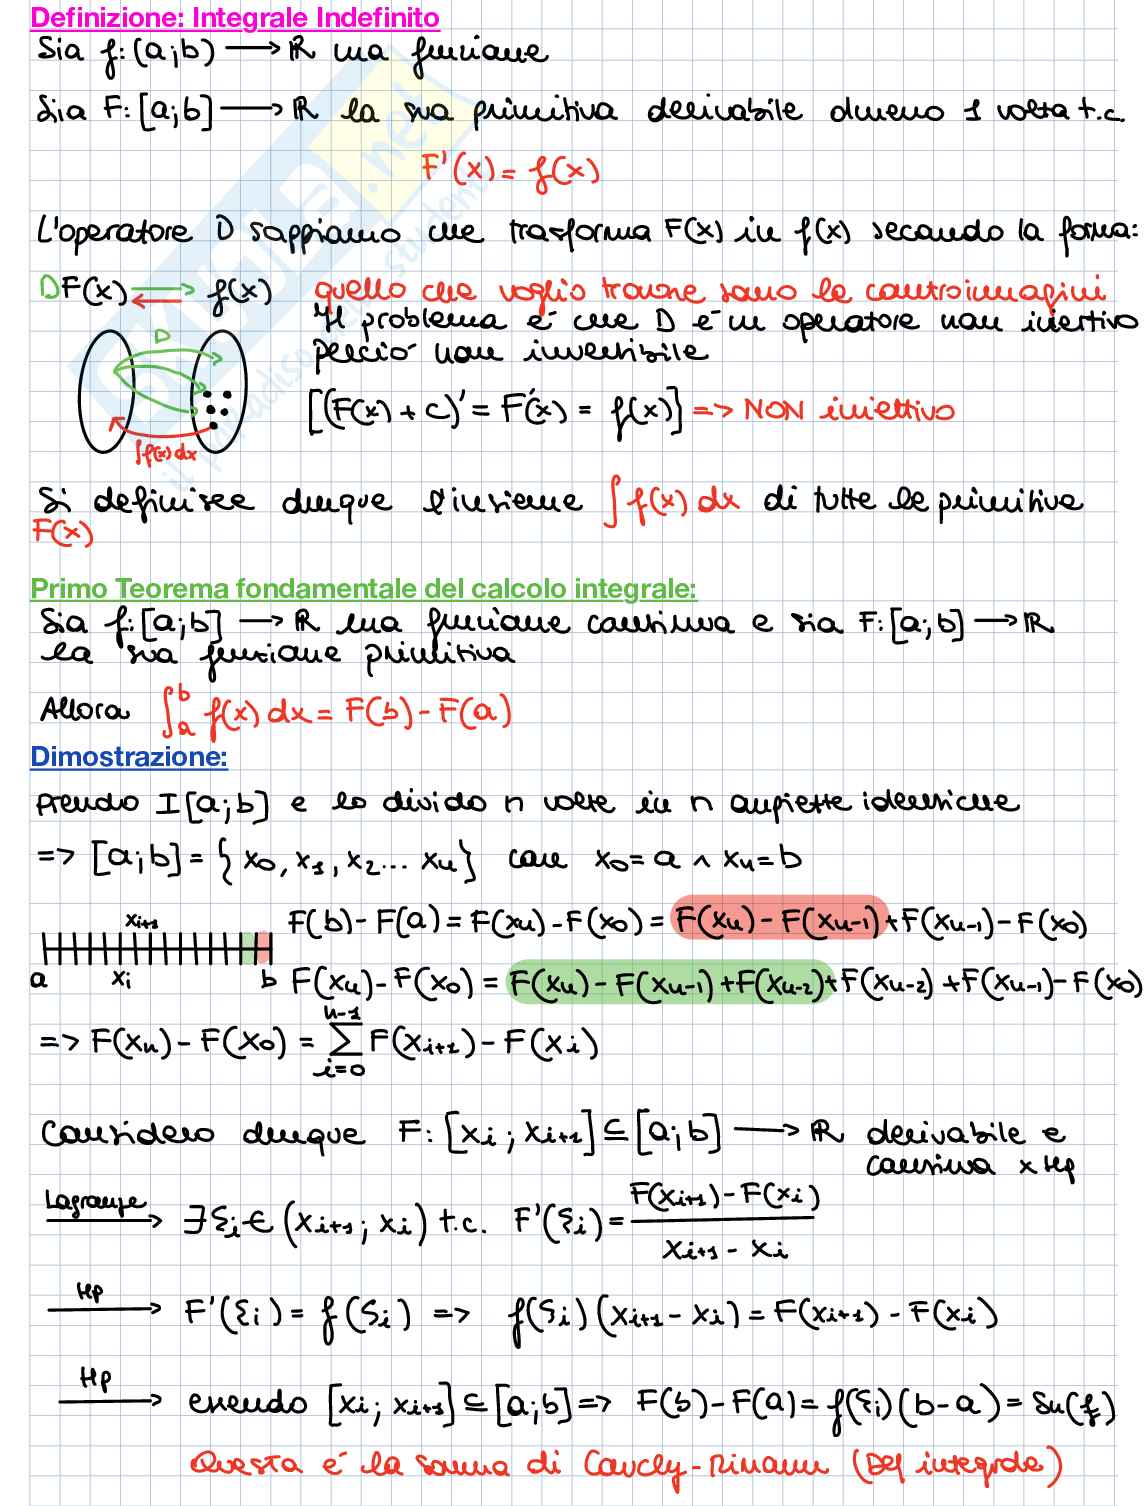 Definizione: Integrale Indefinito
Sia f: (a;b) ⟶ ℝ una funzione
Sia F: [a;b] ⟶ ℝ la sua primitiva derivabile almeno 1 volta t.c.
F'(x) = f(x)
L'operatore D sappiamo che trasforma F(x) in f(x) secondo la forma:
DF(x) ⇄ f(x) quello che voglio trovare sono le controimmagini
Il problema é che D é un operatore non iniettivo
D perció non invertibile
[(F(x) + c)' = F'(x) = f(x)] => NON iniettivo
∫f(x) dx
Si definisce dunque l'insieme ∫ f(x) dx di tutte le primitive
F(x)
Primo Teorema fondamentale del calcolo integrale:
Sia f: [a;b] ⟶ ℝ una funzione continua e sia F: [a;b] ⟶ ℝ
la sua funzione primitiva
Allora ∫_a^b f(x) dx = F(b) - F(a)
Dimostrazione:
Prendo I [a;b] e lo divido n volte in n ampiezze identiche
=> [a;b] = { x₀, x₁, x₂... xₙ } con x₀ = a ∧ xₙ = b
F(b) - F(a) = F(xₙ) - F(x₀) = F(xₙ) - F(xₙ₋₁) + F(xₙ₋₁) - F(x₀)
xᵢ₊₁
a xᵢ b
F(xₙ) - F(x₀) = F(xₙ) - F(xₙ₋₁) + F(xₙ₋₂) + F(xₙ₋₂) + F(xₙ₋₁) - F(x₀)
=> F(xₙ) - F(x₀) = ∑_{i=0}^{n-1} F(xᵢ₊₁) - F(xᵢ)
Considero dunque F: [xᵢ ; xᵢ₊₁] ⊆ [a;b] ⟶ ℝ derivabile e
continua x Hp
Lagrange ⟶ ∃ ξᵢ ∈ (xᵢ₊₁ ; xᵢ) t.c. F'(ξᵢ) = (F(xᵢ₊₁) - F(xᵢ)) / (xᵢ₊₁ - xᵢ)
Hp ⟶ F'(ξᵢ) = f(ξᵢ) => f(ξᵢ)(xᵢ₊₁ - xᵢ) = F(xᵢ₊₁) - F(xᵢ)
Hp ⟶ essendo [xᵢ ; xᵢ₊₁] ⊆ [a;b] => F(b) - F(a) = f(ξᵢ)(b - a) = Sn(f)
Questa é la somma di Cauchy-Rimann (Def integrale)